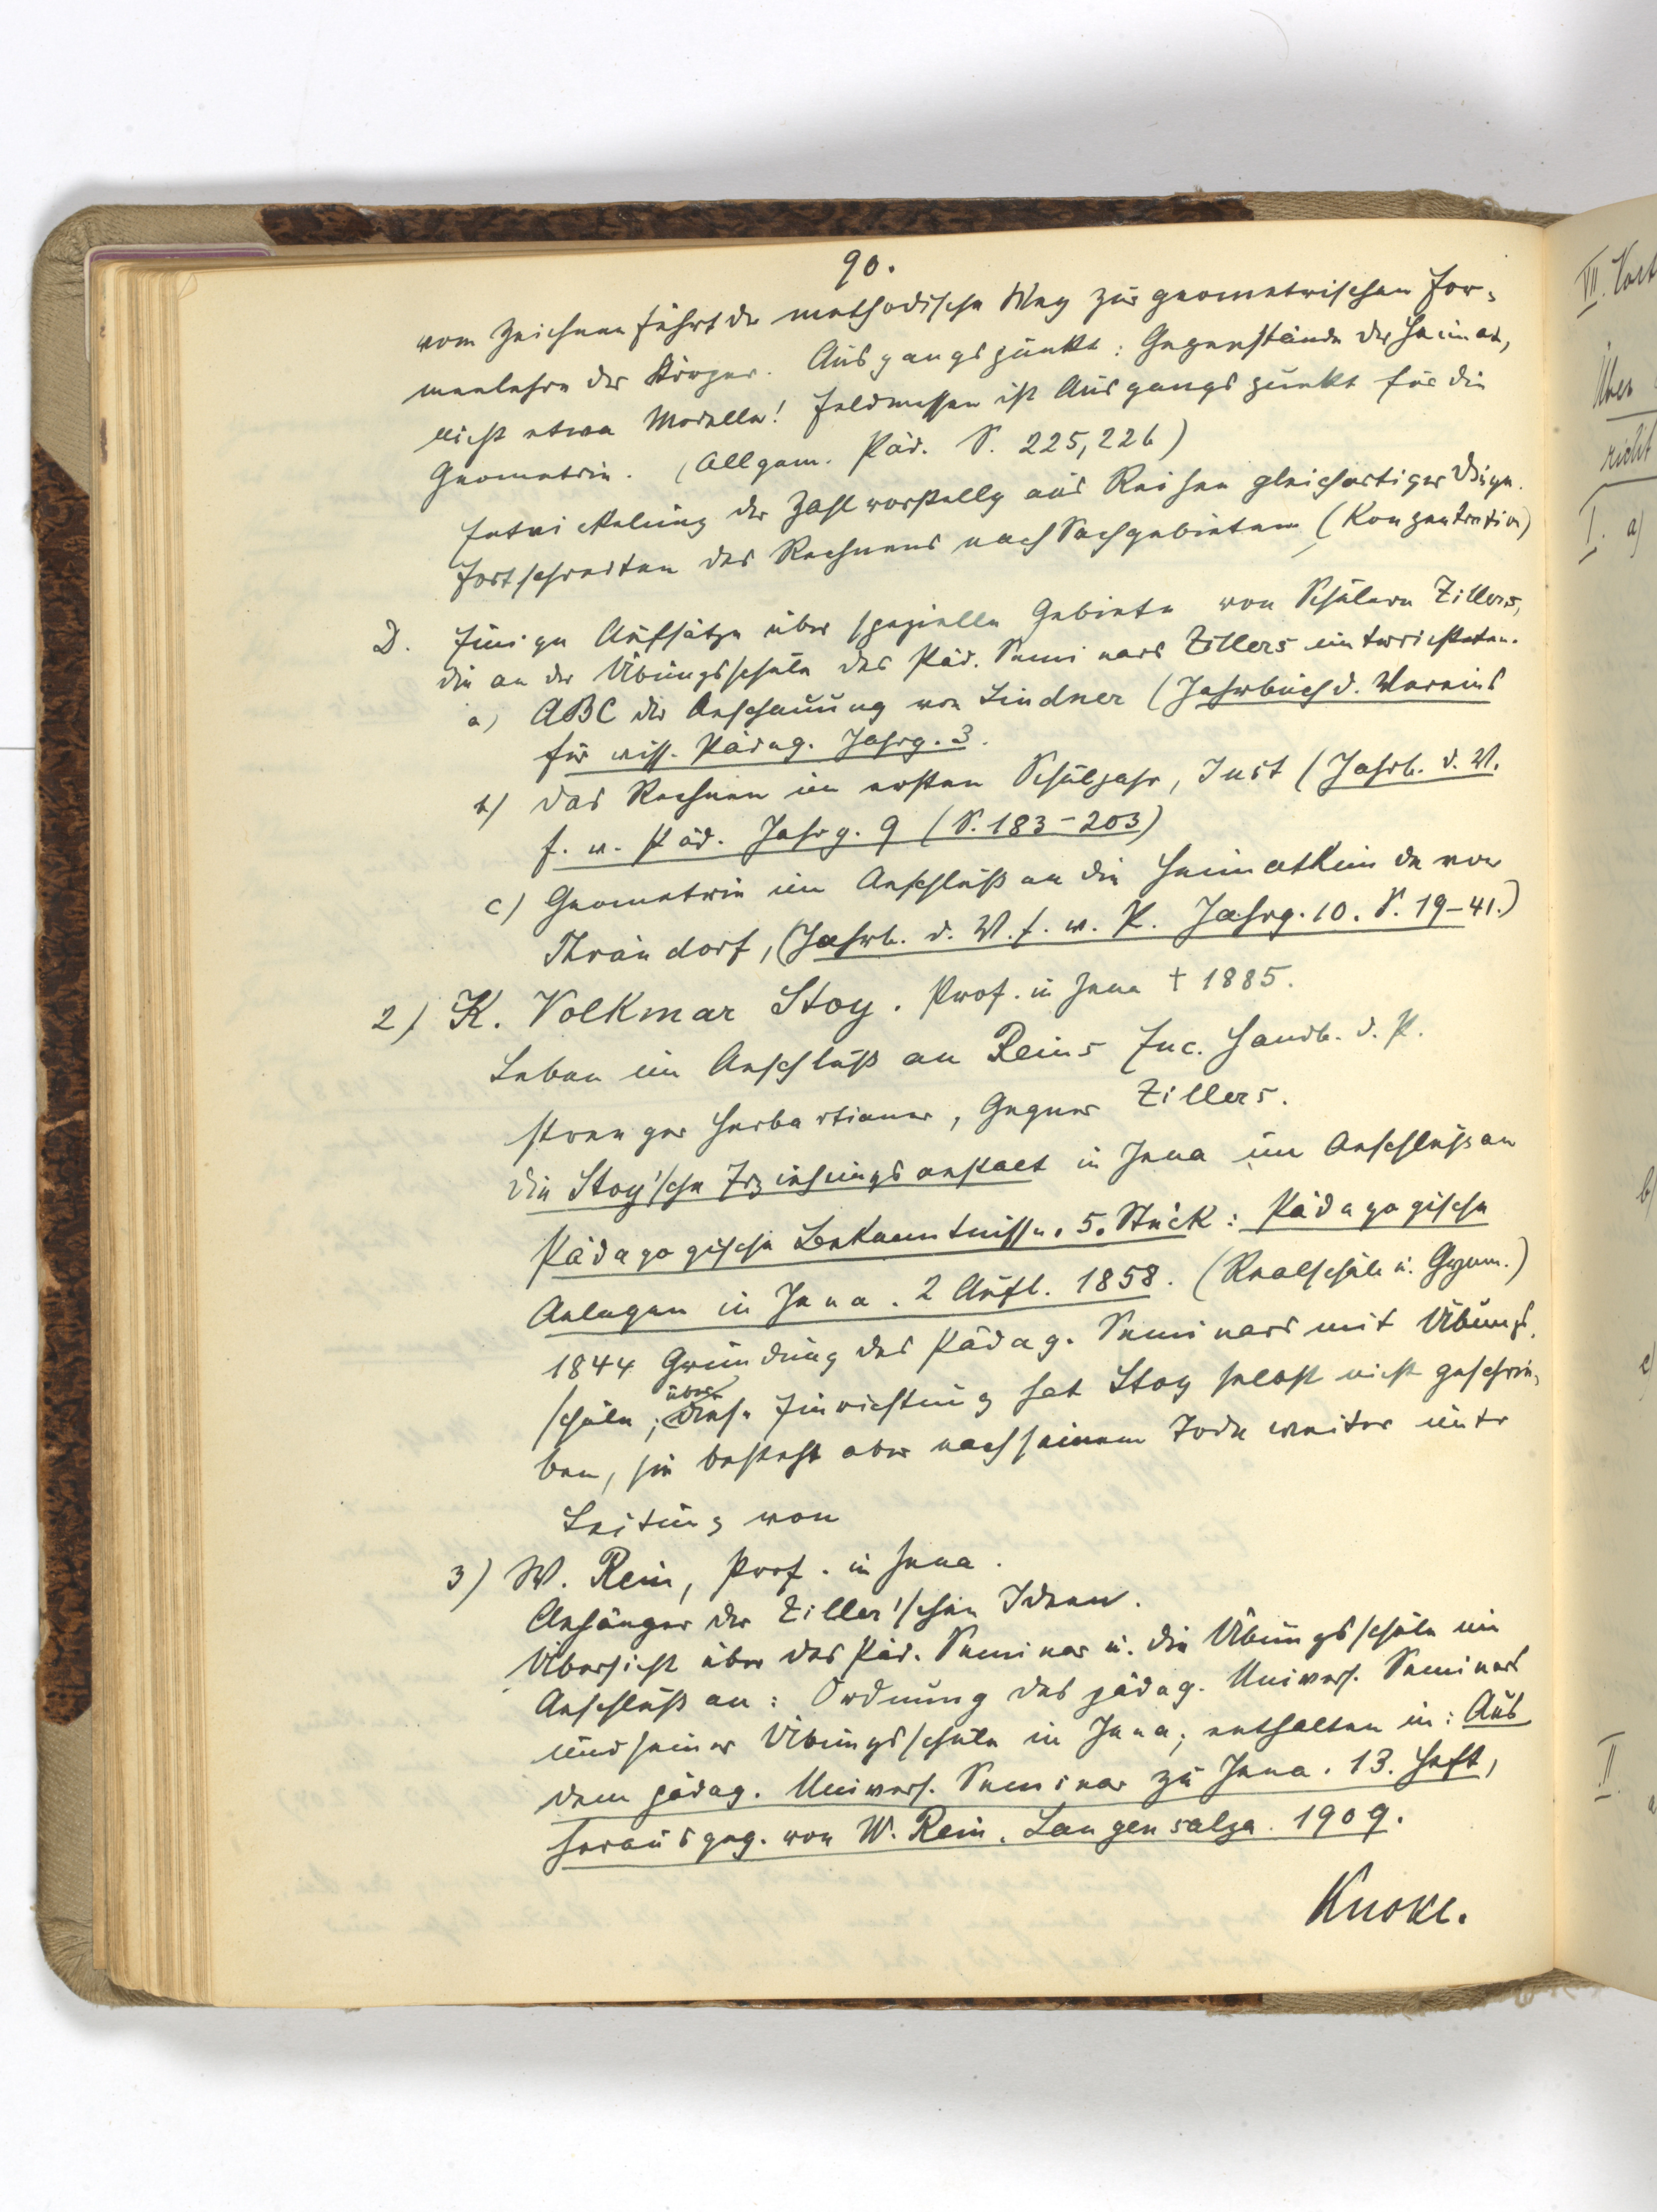 90.
vom Zeichnen führt der methodische Weg zur geometrischen For-
menlehre der Körper. Ausgangspunkt: Gegenstände der Heimat,
nicht etwa Modelle! Feldmessen ist Ausgangspunkt für die
Geometrie. (Allgem. Päd. S. 225, 226)
Entwickelung der Zahlvorstellg aus Reihen gleichartiger Dinge.
Fortschreiten des Rechnens nach Sachgebieten (Konzentration)
D. Einige Aufsätze über spezielle Gebiete von Schülern Zillers,
die an der Übungsschule des Päd. Seminars Zillers unterrichteten.
a) ABC der Anschauung von Lindner (Jahrbuch d. Vereins
für wiss. Pädag. Jahrg. 3.
b) Das Rechnen im ersten Schuljahr, Just (Jahrb. d. V.
f. w. Päd. Jahrg. 9 (S. 183-203)
c) Geometrie im Anschluß an die Heimatkunde von
Thrändorf, (Jahrb. d. V. f. w. P. Jahrg. 10. S. 19-41.)
2) K. Volkmar Stoy. Prof. in Jena † 1885.
Leben im Anschluß an Reins Enc. Handb. d. P.
strenger Herbartianer, Gegner Zillers.
Die Stoy'sche Erziehungsanstalt in Jena im Anschluß an
Pädagogische Bekenntnisse. 5. Stück: Pädagogische
Anlagen in Jena. 2 Aufl. 1858. (Realschule u. Gymn.)
1844 Gründung des Pädag. Seminars mit Übungs-
schule; über diese Einrichtung hat Stoy selbst nicht geschrie-
ben, sie besteht aber nach seinem Tode weiter unter
Leitung von
3) W. Rein, Prof. in Jena.
Anhänger der Ziller'schen Ideen.
Übersicht über das Päd. Seminar u. die Übungsschule im
Anschluß an: Ordnung des pädag. Univers. Seminars
und seiner Übungsschule in Jena; enthalten in: Aus
dem pädag. Univers. Seminar zu Jena. 13. Heft,
herausgeg. von W. Rein. Langensalza. 1909.
Knoke.
VII.
Über
richt
I. a)
b)
c)
II